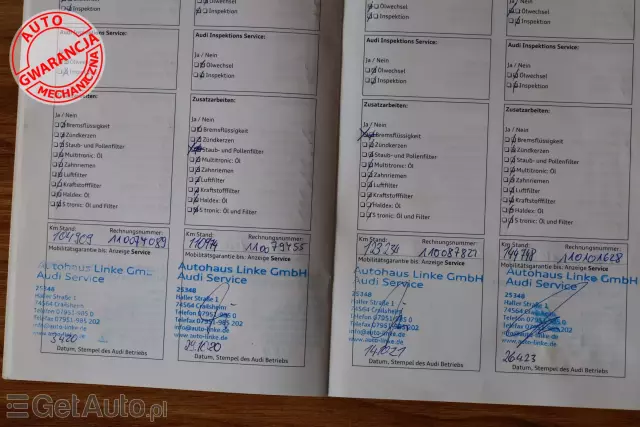 AUTO
GWARANCJA
MECHANICZNA
Inspektion
Audi Inspektions Service:
Ja / Nein
Ölwechsel
Inspektion
Zusatzarbeiten:
Ja / Nein
Bremsflüssigkeit
Zündkerzen
Staub- und Pollenfilter
Multitronic: Öl
Zahnriemen
Luftfilter
Kraftstofffilter
Haldex: Öl
S tronic: Öl und Filter
Km Stand: Rechnungsnummer:
104909 110074089
Mobilitätsgarantie bis: Anzeige Service
Autohaus Linke GmbH
Audi Service
25348
Haller Straße 1
74564 Crailsheim
Telefon 07951-985 0
Telefax 07951-985 202
info@auto-linke.de
www.auto-linke.de
5420
Datum, Stempel des Audi Betriebs
Inspektion
Audi Inspektions Service:
Ja / Nein
Ölwechsel
Inspektion
Zusatzarbeiten:
Ja / Nein
Bremsflüssigkeit
Zündkerzen
Staub- und Pollenfilter
Multitronic: Öl
Zahnriemen
Luftfilter
Kraftstofffilter
Haldex: Öl
S tronic: Öl und Filter
Km Stand: Rechnungsnummer:
Mobilitätsgarantie bis: Anzeige Service
Autohaus Linke GmbH
Audi Service
25348
Haller Straße 1
74564 Crailsheim
Telefon 07951-985 0
Telefax 07951-985 202
info@auto-linke.de
www.auto-linke.de
Datum, Stempel des Audi Betriebs
Inspektion
Audi Inspektions Service:
Ja / Nein
Ölwechsel
Inspektion
Zusatzarbeiten:
Ja / Nein
Bremsflüssigkeit
Zündkerzen
Staub- und Pollenfilter
Multitronic: Öl
Zahnriemen
Luftfilter
Kraftstofffilter
Haldex: Öl
S tronic: Öl und Filter
Km Stand: Rechnungsnummer:
123234 110087821
Mobilitätsgarantie bis: Anzeige Service
Autohaus Linke GmbH
Audi Service
25348
Haller Straße 1
74564 Crailsheim
Telefon 07951-985 0
Telefax 07951-985 202
info@auto-linke.de
www.auto-linke.de
Datum, Stempel des Audi Betriebs
Inspektion
Audi Inspektions Service:
Ja / Nein
Ölwechsel
Inspektion
Zusatzarbeiten:
Ja / Nein
Bremsflüssigkeit
Zündkerzen
Staub- und Pollenfilter
Multitronic: Öl
Zahnriemen
Luftfilter
Kraftstofffilter
Haldex: Öl
S tronic: Öl und Filter
Km Stand: Rechnungsnummer:
110101628
Mobilitätsgarantie bis: Anzeige Service
Autohaus Linke GmbH
Audi Service
25348
Haller Straße 1
74564 Crailsheim
Telefon 07951-985 0
Telefax 07951-985 202
info@auto-linke.de
www.auto-linke.de
26423
Datum, Stempel des Audi Betriebs
GetAuto.pl